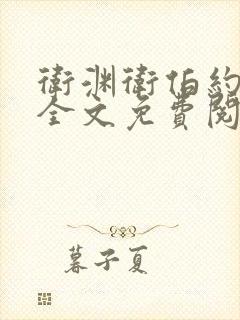 衛渊衛伯約
全文免費閱
暮子夏